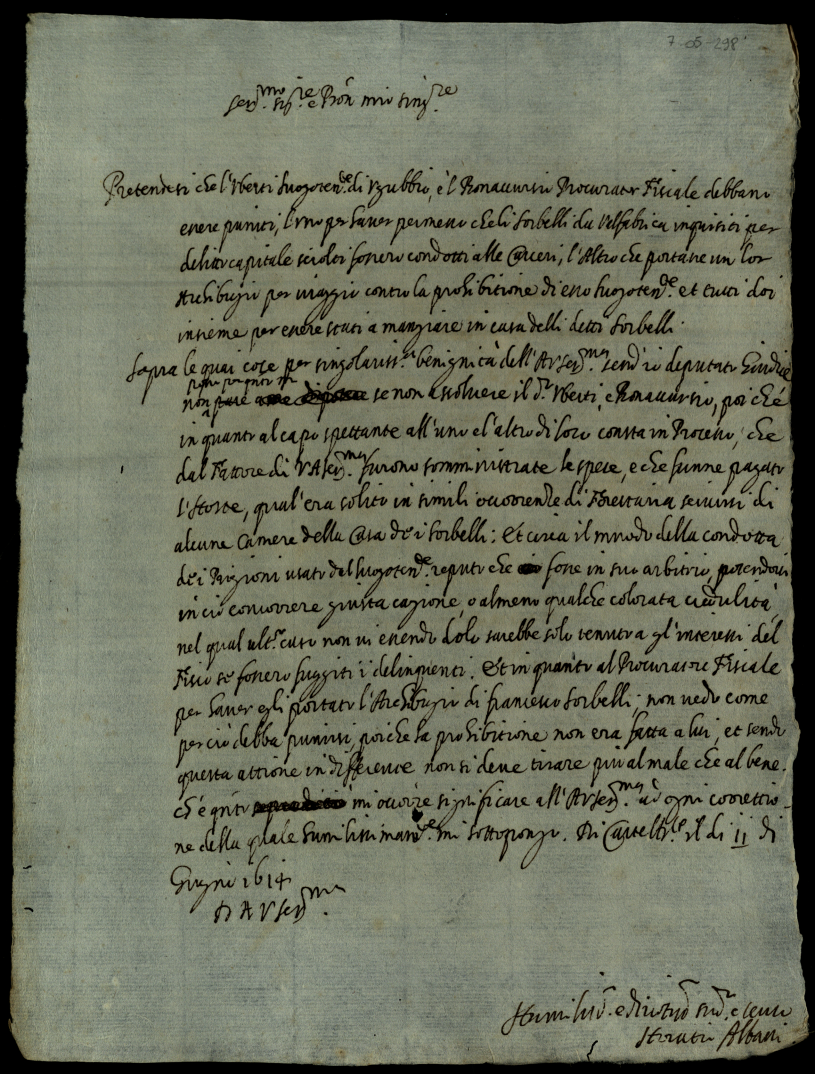 7-05-298
Ser.mo Sig.re e Pron mio sing.re
Pretendesi che l'Uberti luogoten.te di Ugubbio, e'l Bonaventura Procurator Fiscale debbano
essere puniti, l'uno per haver permesso che li Sorbelli da Valfabrica inquisiti per
delitto capitale sciolti fossero condotti alle Carceri, l'Altro che portasse un lor
Archibugio per viaggio contro la prohibitione di esso luogoten.te et tutti doi
insieme per essere stati a mangiare in casa delli detti Sorbelli.
Sopra le quai cose per singolariss.a benignità dell'A V Ser.ma send'io deputato Giudice
non se non assolvere il d.o Uberti, e Bonaventura, poi che
in quanto al capo spettante all'uno e l'altro di loro consta in Processo, che
dal Fattore di V A Ser.ma furono somministrate le spese, e che funne pagato
l'Hoste, qual'era solito in simili occorrenze di Forestaria servirsi di
alcune Camere della Casa de i Sorbelli: Et circa il modo della condotta
de i Prigioni usato dal luogoten.te reputo che fosse in suo arbitrio, potendovi
in ciò concorrere giusta cagione, o almeno qualche colorata credulità
nel qual ult.o caso non vi essendo dolo sarebbe solo tenuto a gl'interessi del
Fisco se fossero fuggiti i delinquenti. Et in quanto al Procuratore Fiscale
per haver egli portato l'Archibugio di francesco Sorbelli, non vedo come
perciò debba punirsi, poiche la prohibitione non era fatta a lui, et sendo
questa attione indifferente non si deve tirare più al male che al bene.
ch'è q.nto mi occorre significare all'A V Ser.ma ad ogni correttio-
ne della quale humilissimam.te mi sottopongo. Di Casteld.te il di 11 di
Giugno 1614
Di A V Ser.ma
Humiliss.o e Divotiss.o sud.to e servo
Horatio Albani